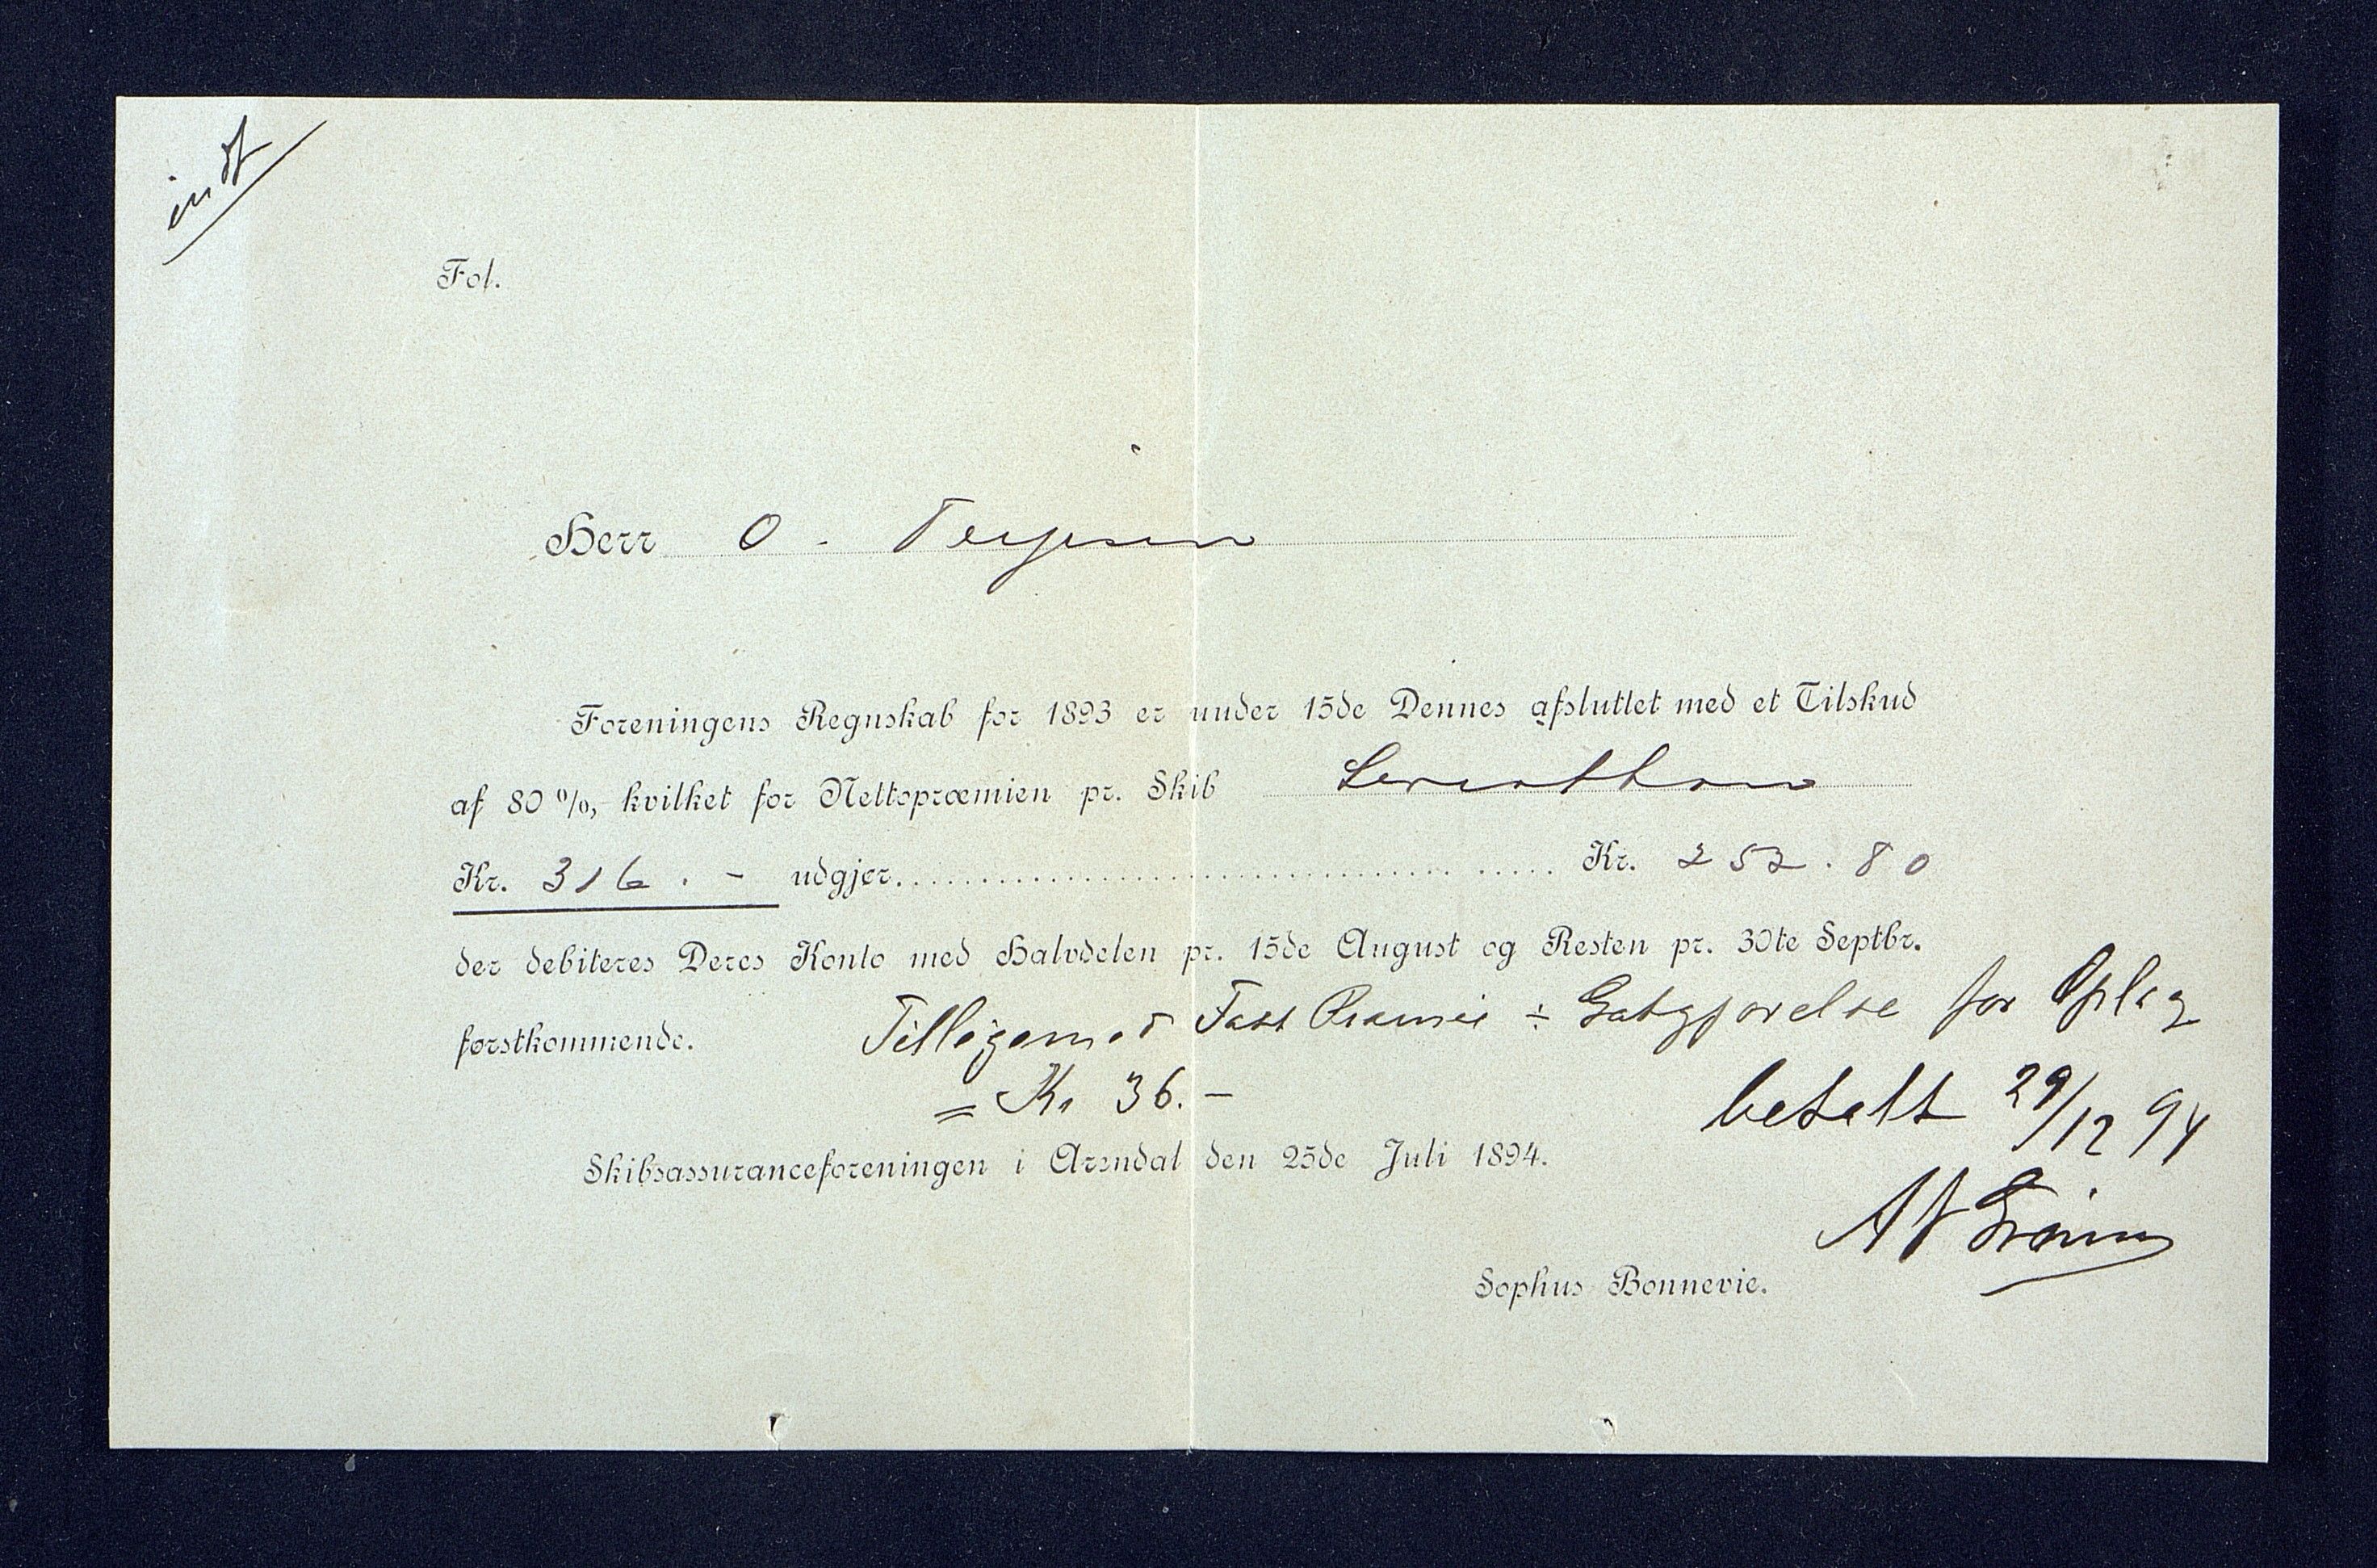 indf
Fol.
Herr O. Terjesen
Foreningens Regnskab for 1893 er under 15de Dennes afsluttet med et Tilskud
af 80 %, hvilket for Nettopræmien pr. Skib Leviathan
Kr. 316. - udgjør........ Kr. 252.80
der debiteres Deres Konto med Halvdelen pr. 15de August og Resten pr. 30te Septbr.
førstkommende. Fast Præmie ÷ Godtgjørelse for Oplag
= Kr 36.-
betalt 29/12 94
Skibsassuranceforeningen i Arendal den 25de Juli 1894.
Sophus Bonnevie.